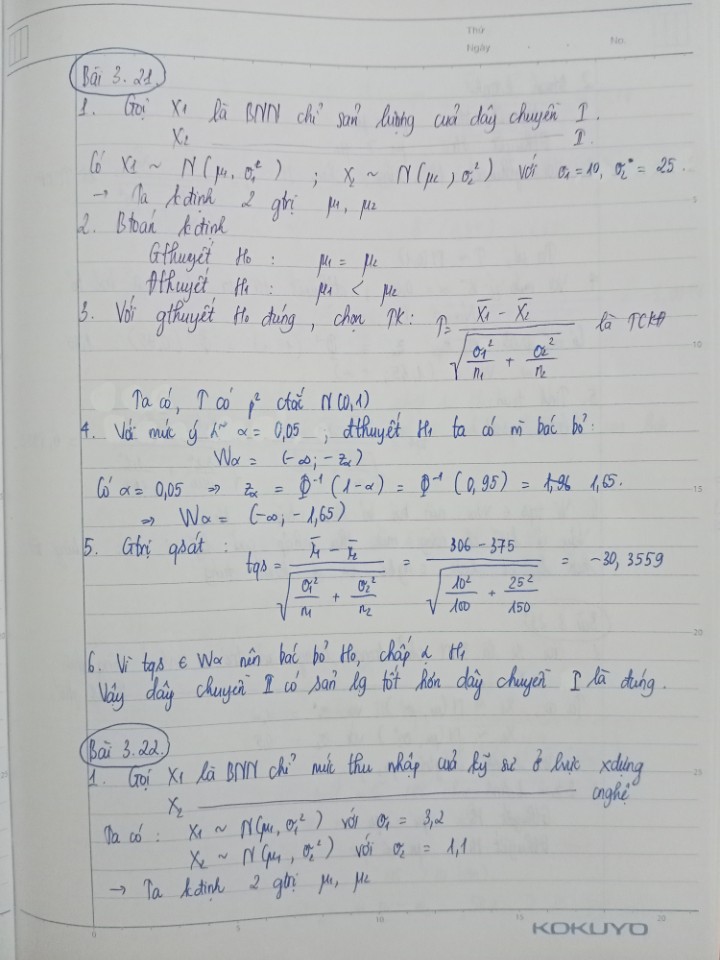 Thứ
Ngày . . No.
Bài 3.21.
1. Gọi X1 là BNN chỉ sản lượng của dây chuyền I.
X2 ———————————— II.
Có X1 ~ N(μ1, σ1²) ; X2 ~ N(μ2, σ2²) với σ1 = 10, σ2 = 25.
→ Ta kđịnh 2 gtrị μ1, μ2
2. Btoán kđịnh
Gthuyết H0 : μ1 = μ2
Đthuyết H1 : μ1 < μ2
3. Với gthuyết H0 đúng, chọn TK: T = (X̄1 − X̄2) / √(σ1²/n1 + σ2²/n2) là TCKĐ
Ta có, T có p² ctắc N(0,1)
4. Với mức ý α = 0,05 ; đthuyết H1 ta có m bác bỏ:
Wα = (-∞; -zα)
Có α = 0,05 ⇒ zα = Φ⁻¹(1-α) = Φ⁻¹(0,95) = 1,96 1,65.
⇒ Wα = (-∞; -1,65)
5. Gtrị qsát : tqs = (x̄1 − x̄2) / √(σ1²/n1 + σ2²/n2) = (306 − 375) / √(10²/100 + 25²/150) = −30,3559
6. Vì tqs ∈ Wα nên bác bỏ H0, chấp H1
Vậy dây chuyền II có sản lg tốt hơn dây chuyền I là đúng.
Bài 3.22.
1. Gọi X1 là BNN chỉ mức thu nhập của kỹ sư ở lvực xdựng
X2 ———————————— cnghệ
Ta có : X1 ~ N(μ1, σ1²) với σ1 = 3,2
X2 ~ N(μ1, σ2²) với σ2 = 1,1
→ Ta kđịnh 2 gtrị μ1, μ2
KOKUYO